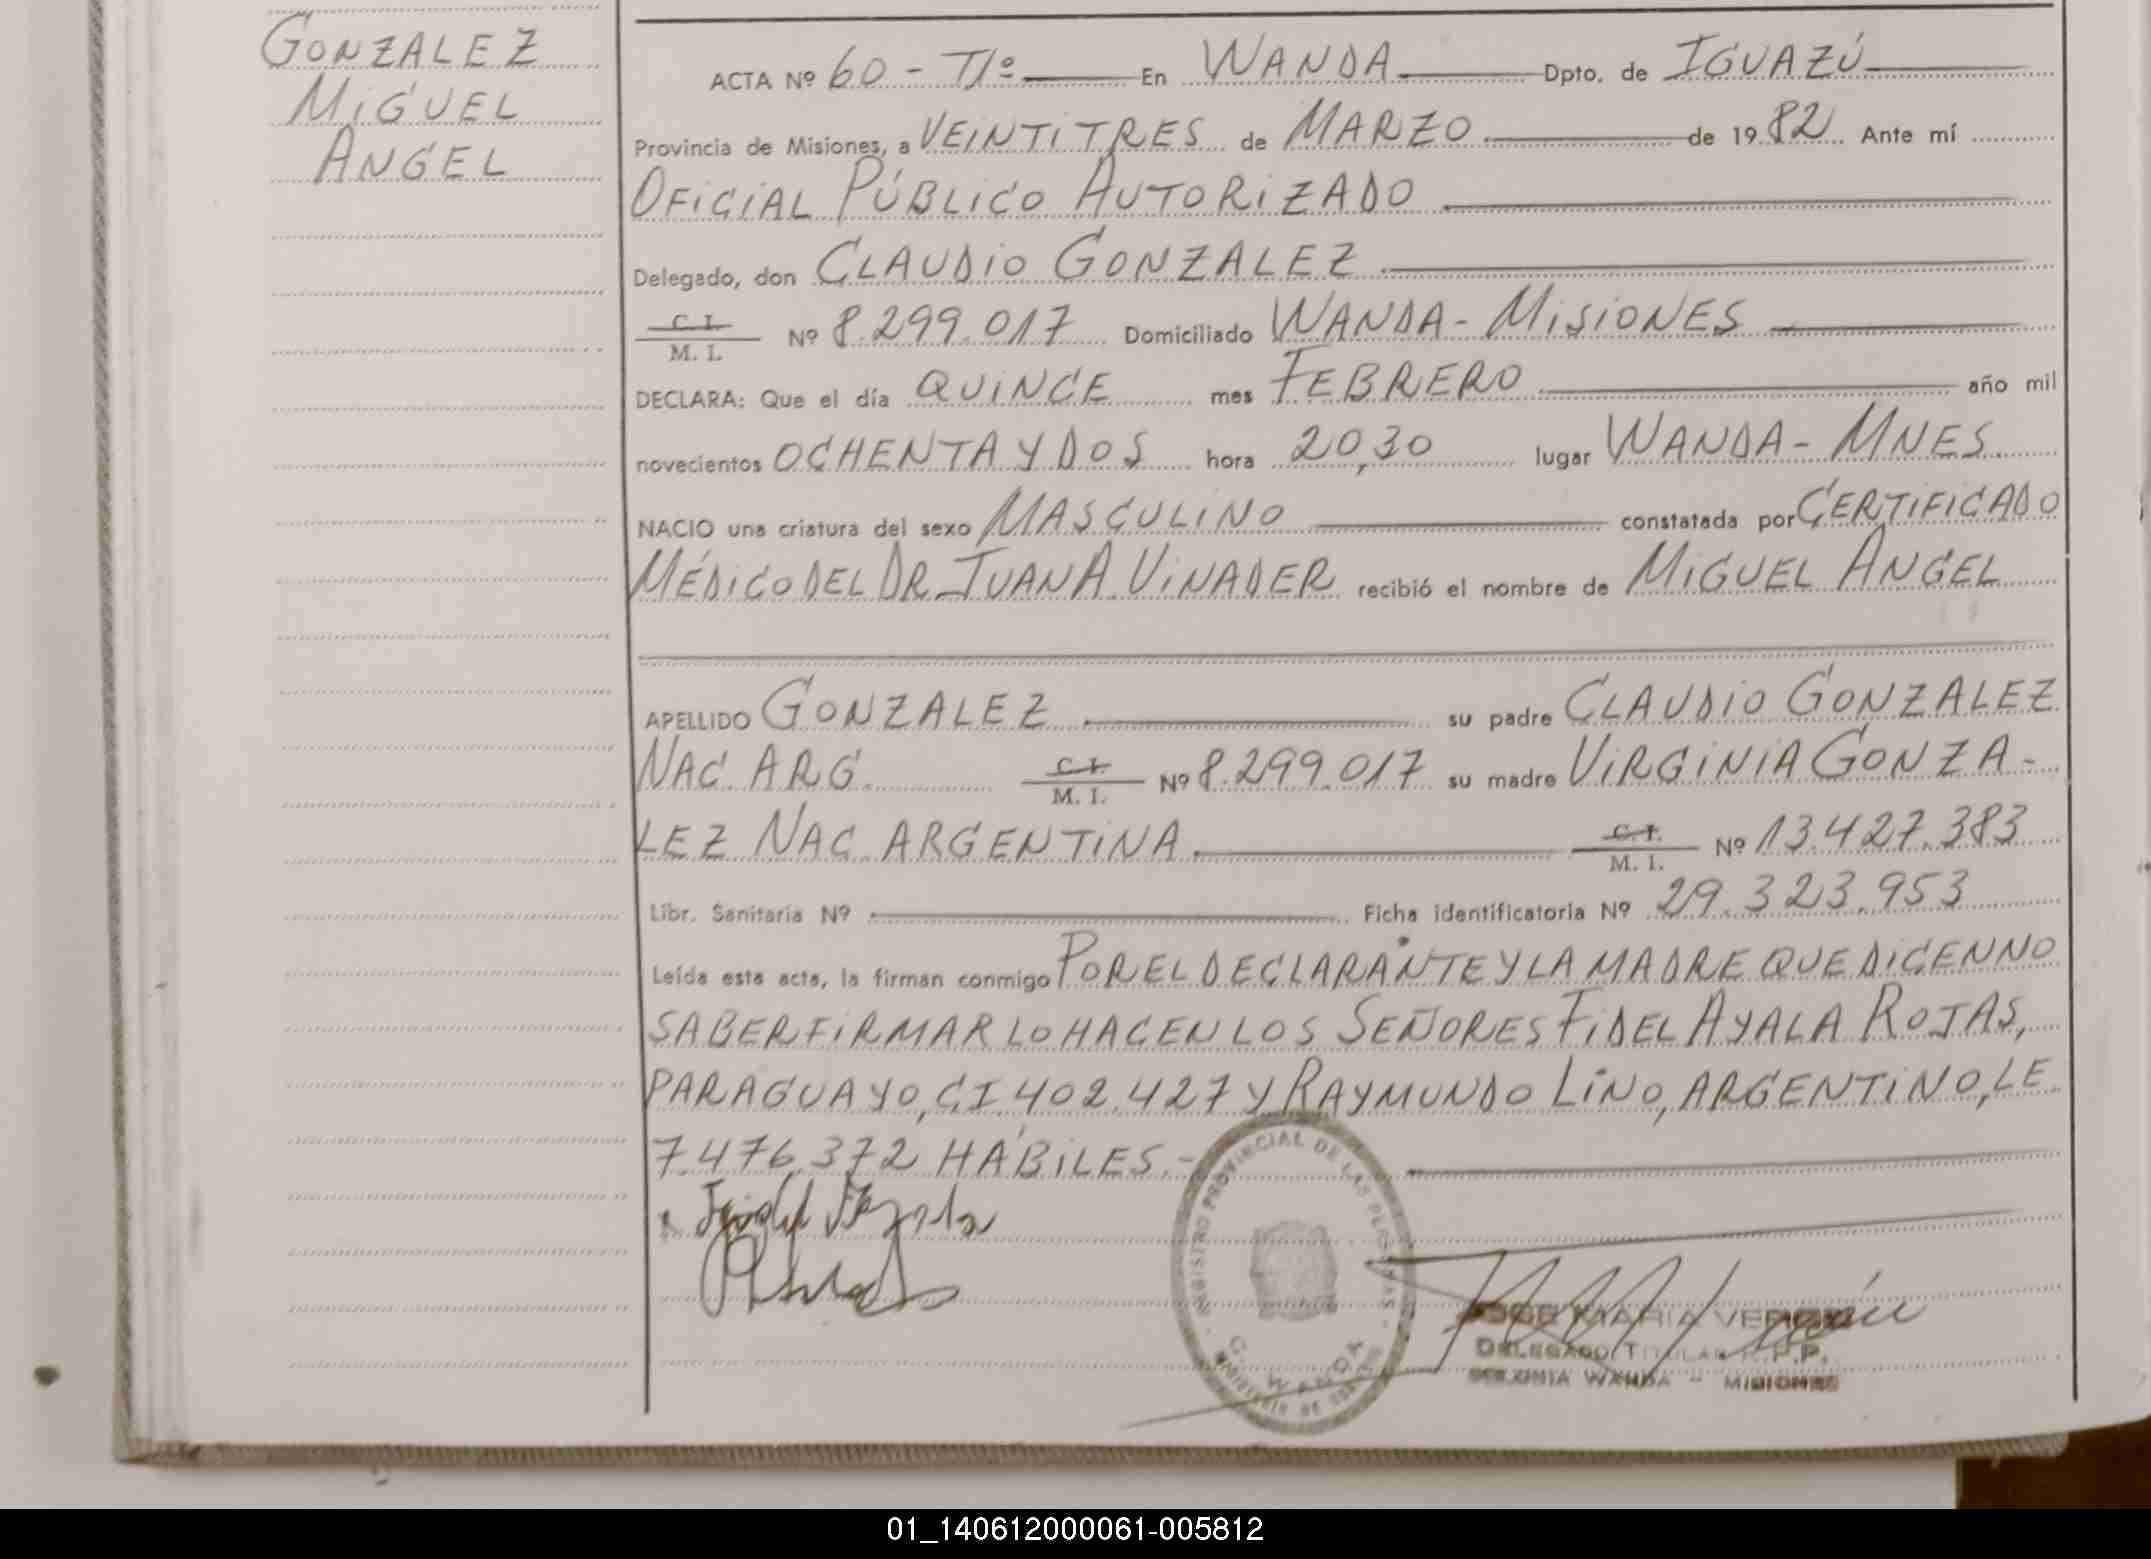 GONZALEZ
MIGUEL
ANGEL
ACTA Nº 60 - Tº En WANDA Dpto. de IGUAZÚ
Provincia de Misiones, a VEINTITRES de MARZO de 1982. Ante mí
OFICIAL PÚBLICO AUTORIZADO
Delegado, don CLAUDIO GONZALEZ
C. I. / M. I. Nº 8.299.017 Domiciliado WANDA - MISIONES
DECLARA: Que el día QUINCE mes FEBRERO año mil
novecientos OCHENTA Y DOS hora 20,30 lugar WANDA - MNES.
NACIO una criatura del sexo MASCULINO constatada por CERTIFICADO
MÉDICO DEL DR. JUAN A. VINADER recibió el nombre de MIGUEL ANGEL
APELLIDO GONZALEZ su padre CLAUDIO GONZALEZ
NAC. ARG. C. I. / M. I. Nº 8.299.017 su madre VIRGINIA GONZA-
LEZ NAC. ARGENTINA C. I. / M. I. Nº 13.427.383
Libr. Sanitaria Nº Ficha identificatoria Nº 29.323.953
Leída esta acta, la firman conmigo POR EL DECLARANTE Y LA MADRE QUE DICEN NO
SABER FIRMAR LO HACEN LOS SEÑORES FIDEL AYALA ROJAS,
PARAGUAYO, C.I. 402.427 Y RAYMUNDO LINO, ARGENTINO, LE
7.476.372 HÁBILES.-
Fidel Ayala
REGISTRO PROVINCIAL DE LAS PERSONAS
C. WANDA
MINISTERIO DE
JOSE MARIA
DELEGADO TITULAR R.P.P.
COLONIA WANDA - MISIONES
01_140612000061-005812